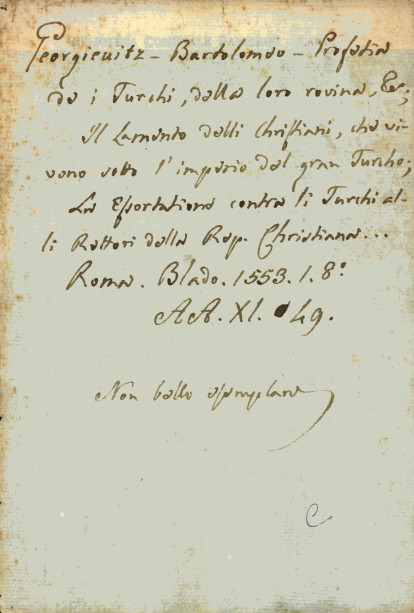 Georgieuitz - Bartolomeo - Profetia
de i Turchi, della loro rovina, &c;
Il Lamento delli Christiani, che vi-
vono sotto l'imperio del gran Turcho;
La Esortatione contra li Turchi al-
li Rettori della Rep. Christiana...
Roma. Blado. 1553. 1. 8º
AA. XI. 49.
Non bello esemplare
C